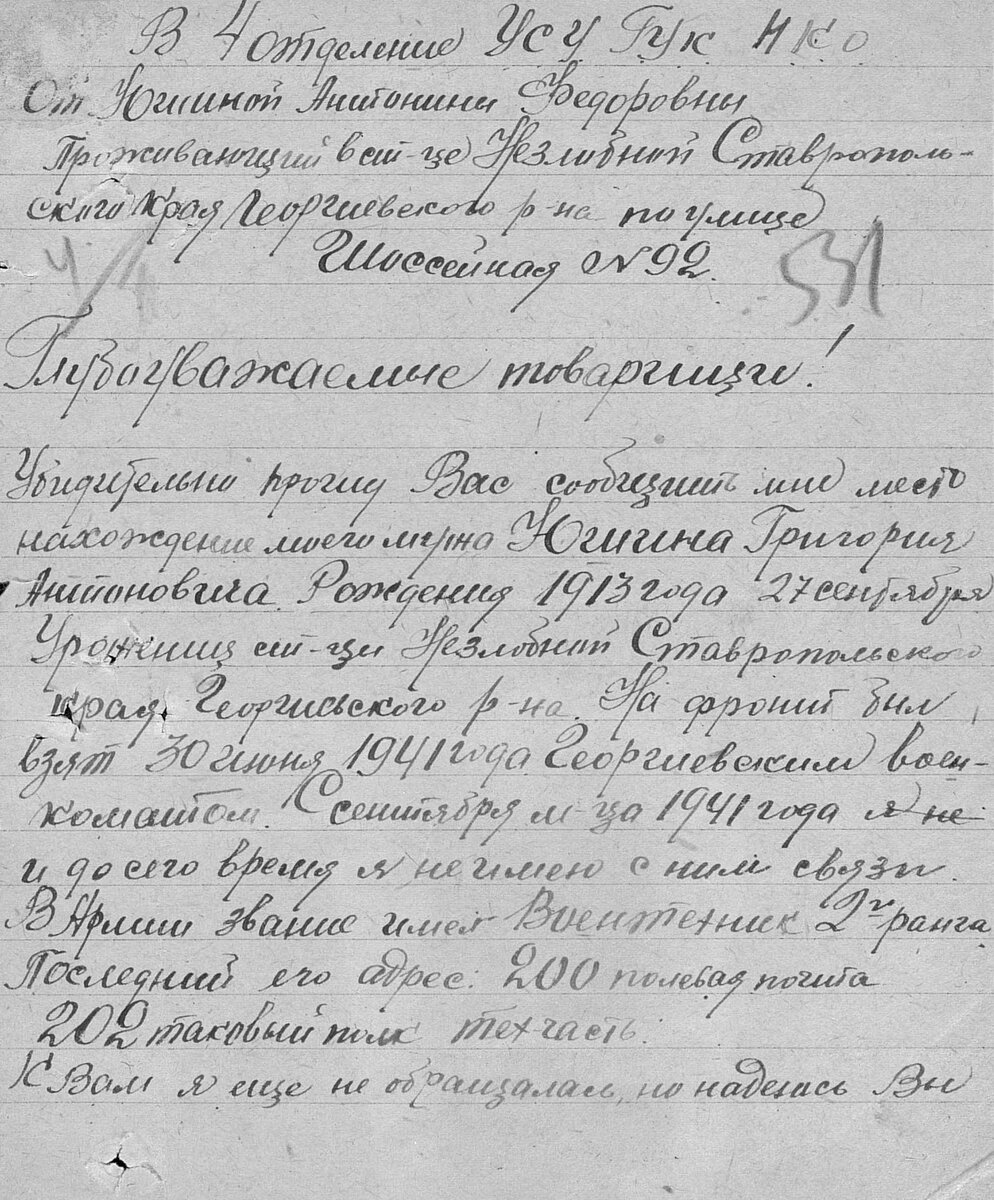 В 4 отделение УСУ ГУК НКО
От Югиной Антонины Федоровны
Проживающий в ст-це Незлобной Ставрополь-
ского края Георгиевского р-на по улице
Шоссейная №92.
4/4 531
Глубоуважаемые товарищи!
Убидительно прошу Вас сообщить мне место
нахождение моего мужа Югина Григория
Антоновича. Рождения 1913 года 27 сентября
Уроженец ст-цы Незлобной Ставропольского
края, Георгиевского р-на. На фронт был
взят 30 июня 1941 года Георгиевским воен-
коматом. С сентября м-ца 1941 года я не
и до сего время я не имею с ним связи.
В Армии звание имел Воентехник 2го ранга
Последний его адрес: 200 полевая почта
202 таковый полк техчасть.
К Вам я еще не обращалась, но надеюсь Вы